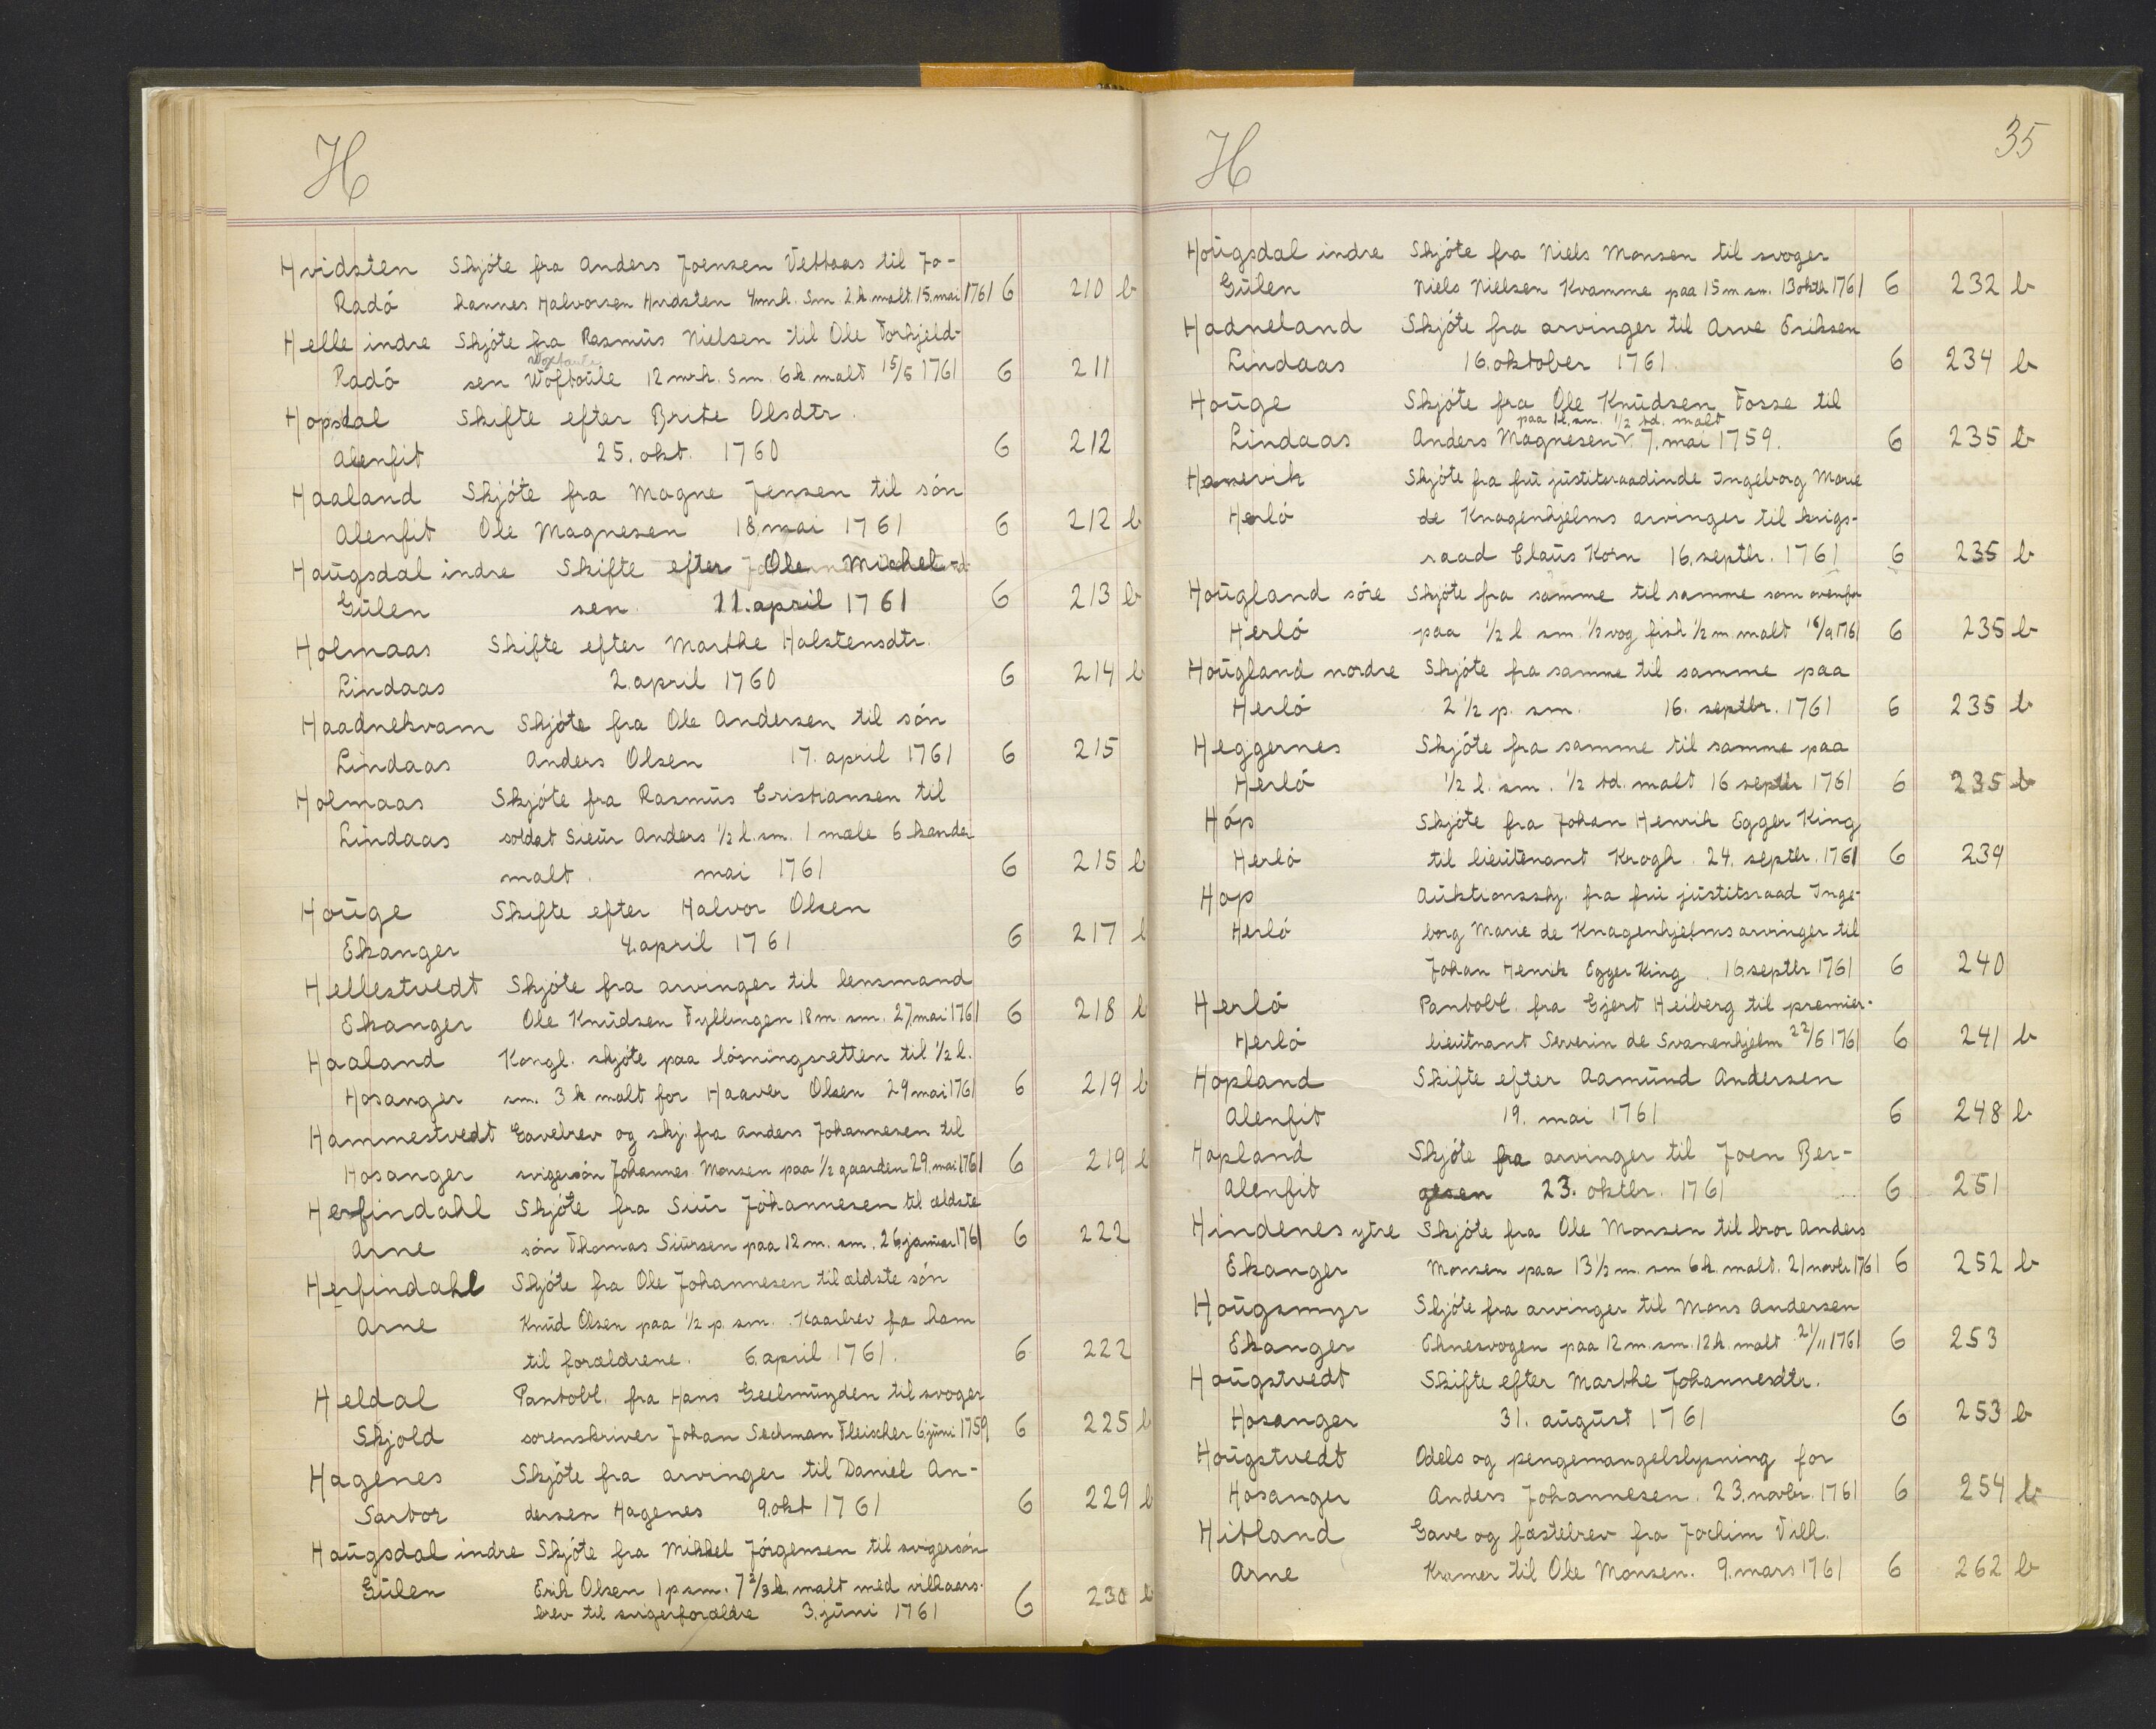 H
Hvidsten Skjóte fra Anders Joensen Vettaas til Jo-
Radó hannes Halvorsen Hvidsten 4 mrk. Sm. 2 k. malt. 15. mai 1761 6 210 b
Helle indre Skjóte fra Rasmus Nielsen til Ole Torkjeld-
Radó sen Woftoule 12 mrk. Sm. 6 k. malt 15/5 1761 6 211
Hopsdal Skifte efter Brite Olsdtr.
Alenfit 25. okt. 1760 6 212
Haaland Skjóte fra Magne Jensen til són
Alenfit Ole Magnesen 18. mai 1761 6 212 b
Haugsdal indre Skifte efter Ole Mickel-
Gulen sen. 11. april 1761 6 213 b
Holmaas Skifte efter Marthe Halstensdtr.
Lindaas 2. april 1760 6 214 b
Haadnekvam Skjóte fra Ole Andersen til són
Lindaas Anders Olsen 17. april 1761 6 215
Holmaas Skjóte fra Rasmus Cristiansen til
Lindaas soldat Sieur Anders 1/2 l. sm. 1 mæle 6 kander
malt. mai 1761 6 215 b
Houge Skifte efter Halvor Olsen
Ekanger 4. april 1761 6 217 b
Hellestvedt Skjóte fra arvinger til lensmand
Ekanger Ole Knudsen Fyllingen 18 m. sm. 27. mai 1761 6 218 b
Haaland Kongl. skjóte paa lósningsretten til 1/2 l.
Hosanger sm. 3 k malt for Haaver Olsen 29 mai 1761 6 219 b
Hammestvedt Gavebrev og skj. fra Anders Johannesen til
Hosanger svigersón Johannes Monsen paa 1/2 gaarden 29. mai 1761 6 219 b
Herfindahl Skjóte fra Siur Johannesen til ældste
Arne són Thomas Siursen paa 12 m. sm. 26. januar 1761 6 222
Herfindahl Skjóte fra Ole Johannesen til ældste són
Arne Knud Olsen paa 1/2 p. sm. Kaarbrev fa ham
til forældrene. 6. april 1761. 6 222
Heldal Pantobl. fra Hans Geelmuyden til svoger
Skjold sorenskriver Johan Sechman Fleischer 6 juni 1759 6 225 b
Hagenes Skjóte fra arvinger til Daniel An-
Sartor dersen Hagenes 9. okt 1761 6 229 b
Haugsdal indre Skjóte fra Mikkel Jórgensen til svigersón
Gulen Erik Olsen 1 p sm. 7 2/3 k. malt med vilkaars-
brev til svigerforældre 3. juni 1761 6 230 b
H 35
Hougsdal indre Skjóte fra Niels Monsen til svoger
Gulen Niels Nielsen Kvamme paa 15 m sm. 13 oktb 1761 6 232 b
Hadneland Skjóte fra arvinger til Arve Eriksen
Lindaas 16. oktober 1761. 6 234 b
Houge Skjóte fra Ole Knudsen Fosse til
paa 1 l. sm. 1/2 td. malt
Lindaas Anders Magnesen 7. mai 1759. 6 235 b
Hanevik Skjóte fra fru justitsraadinde Ingeborg Marie
Herló de Knagenhjelms arvinger til krigs-
raad Claus Korn 16. septbr. 1761 6 235 b
Hougland sóre Skjóte fra samme til samme som ovenfor
Herló paa 1/2 l. sm. 1/2 vog fisk 1/2 m. malt 16/9 1761 6 235 b
Hougland nordre Skjóte fra samme til samme paa
Herló 2 1/2 p. sm. 16. septbr. 1761 6 235 b
Heggernes Skjóte fra samme til samme paa
Herló 1/2 l. sm. 1/2 td. malt 16 septbr 1761 6 235 b
Hóp Skjóte fra Johan Henrik Egger King
Herló til lieutenant Krogh. 24. septbr. 1761 6 239
Hop Auktionsskj. fra fru justitsraad Inge-
Herló borg Marie de Knagenhjelms arvinger til
Johan Henrik Egger King. 16 septbr 1761 6 240
Herló Pantobl. fra Gjert Heiberg til premier-
Herló lieutnant Severin de Svanenhjelm 22/6 1761 6 241 b
Hopland Skifte efter Aamund Andersen
Alenfit 19. mai 1761 6 248 b
Hopland Skjóte fra arvinger til Joen Ber-
Alenfit gesen 23. oktbr. 1761 6 251
Hindenes ytre Skjóte fra Ole Monsen til bror Anders
Ekanger Monsen paa 13 1/2 m. sm 6 k. malt. 21 novbr 1761 6 252 b
Hougsmyr Skjóte fra arvinger til Mons Andersen
Ekanger Eknesvogen paa 12 m. sm. 12 k. malt 21/11 1761 6 253
Hougstvedt Skifte efter Marthe Johannesdtr.
Hosanger 31. august 1761 6 253 b
Hougstvedt Odels og pengemangelslysning for
Hosanger Anders Johannesen. 23. novbr. 1761 6 254 b
Hitland Gave og fæstebrev fra Jochim Vilh.
Arne Kramer til Ole Monsen. 9. mars 1761 6 262 b